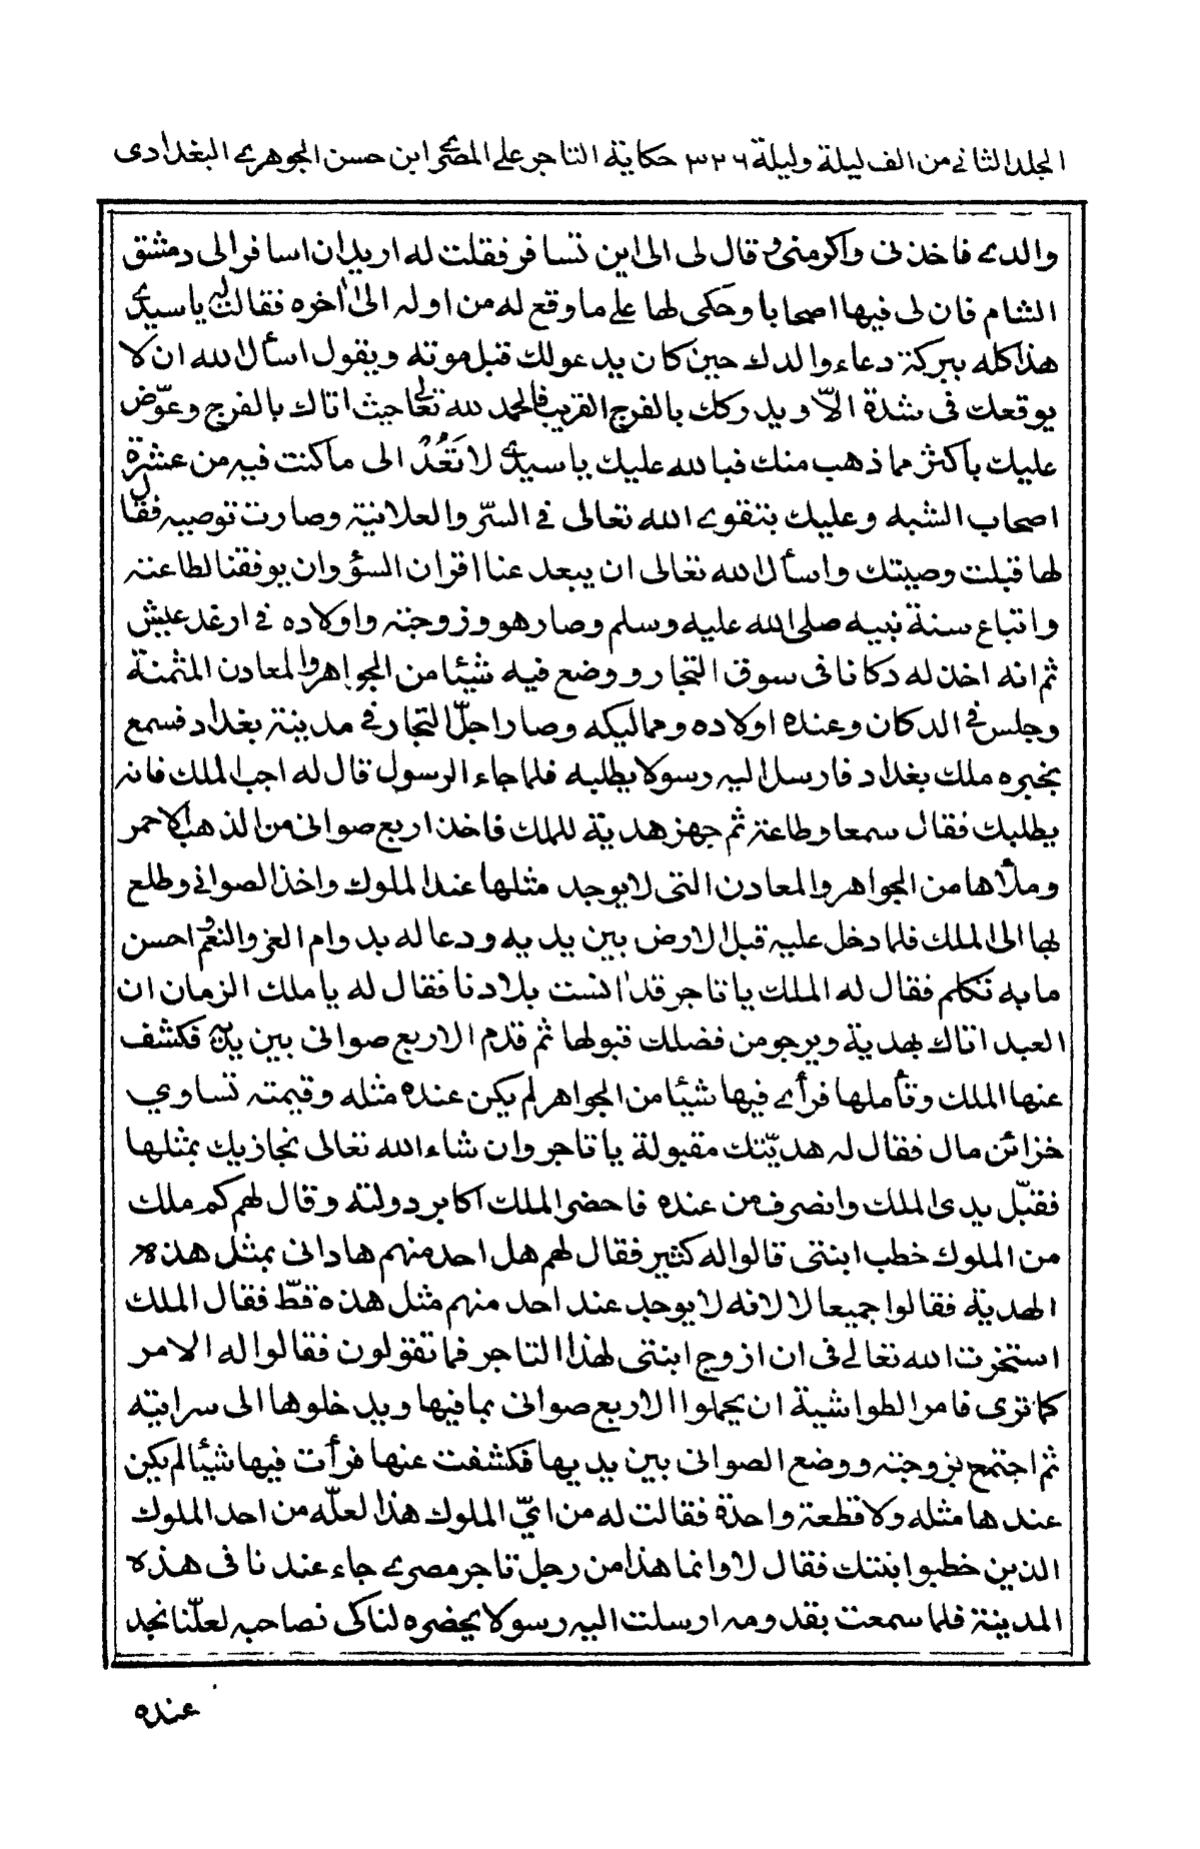 المجلد الثاني من الف ليلة وليلة ٣٢٦ حكاية التاجر علي المصري ابن حسن الجوهري البغدادى
والدي فاخذنى واكرمنى وقال لى الى اين تسافر فقلت له اريد ان اسافر الى دمشق
الشام فان لى فيها اصحابا وحكى لها على ما وقع له من اوله الى اخره فقالت له يا سيدي
هذا كله ببركة دعاء والدك حين كان يدعو لك قبل موته ويقول اسأل الله ان لا
يوقعك فى شدة الّا ويدركك بالفرج القريب فالحمد لله تعالى حيث اتاك بالفرج وعوّض
عليك باكثر مما ذهب منك فبالله عليك يا سيدي لا تَعُدْ الى ما كنت فيه من عشرة
اصحاب الشبه وعليك بتقوى الله تعالى في السّر والعلانية وصارت توصيه فقال
لها قبلت وصيتك واسأل الله تعالى ان يبعد عنا اقران السؤ وان يوفقنا لطاعته
واتباع سنة نبيه صلى الله عليه وسلم وصار هو وزوجته واولاده في ارغد عيش
ثم انه اخذ له دكانا فى سوق التجار ووضع فيه شيئا من الجواهر والمعادن المثمنة
وجلس في الدكان وعنده اولاده ومماليكه وصار اجلّ التجار في مدينة بغداد فسمع
بخبره ملك بغداد فارسل اليه رسولا يطلبه فلما جاء الرسول قال له اجب الملك فانه
يطلبك فقال سمعا وطاعة ثم جهز هدية للملك فاخذ اربع صوانى من الذهب الاحمر
وملأها من الجواهر والمعادن التى لا يوجد مثلها عند الملوك واخذ الصواني وطلع
بها الى الملك فلما دخل عليه قبل الارض بين يديه ودعا له بدوام العز والنعم واحسن
ما به تكلم فقال له الملك يا تاجر قد انست بلادنا فقال له يا ملك الزمان ان
العبد اتاك بهدية ويرجو من فضلك قبولها ثم قدم الاربع صوانى بين يديه فكشف
عنها الملك وتأملها فرأى فيها شيئا من الجواهر لم يكن عنده مثله وقيمته تساوي
خزائن مال فقال له هديّتك مقبولة يا تاجر وان شاء الله تعالى نجازيك بمثلها
فقبّل يدى الملك وانصرف من عنده فاحضر الملك اكابر دولته وقال لهم كم ملك
من الملوك خطب ابنتى قالوا له كثير فقال لهم هل احد منهم هادانى بمثل هذه
الهدية فقالوا جميعا لا لانه لا يوجد عند احد منهم مثل هذه قطّ فقال الملك
استخرت الله تعالى فى ان ازوج ابنتى لهذا التاجر فما تقولون فقالوا له الامر
كما ترى فامر الطواشية ان يحملوا الاربع صوانى بما فيها ويدخلوها الى سرايته
ثم اجتمع بزوجته ووضع الصوانى بين يديها فكشفت عنها فرأت فيها شيئا لم يكن
عندها مثله ولا قطعة واحدة فقالت له من ايّ الملوك هذا لعلّه من احد الملوك
الذين خطبوا بنتك فقال لا وانما هذا من رجل تاجر مصري جاء عندنا فى هذه
المدينة فلما سمعت بقدومه ارسلت اليه رسولا يحضره لنا كى نصاحبه لعلّنا نجد
عنده